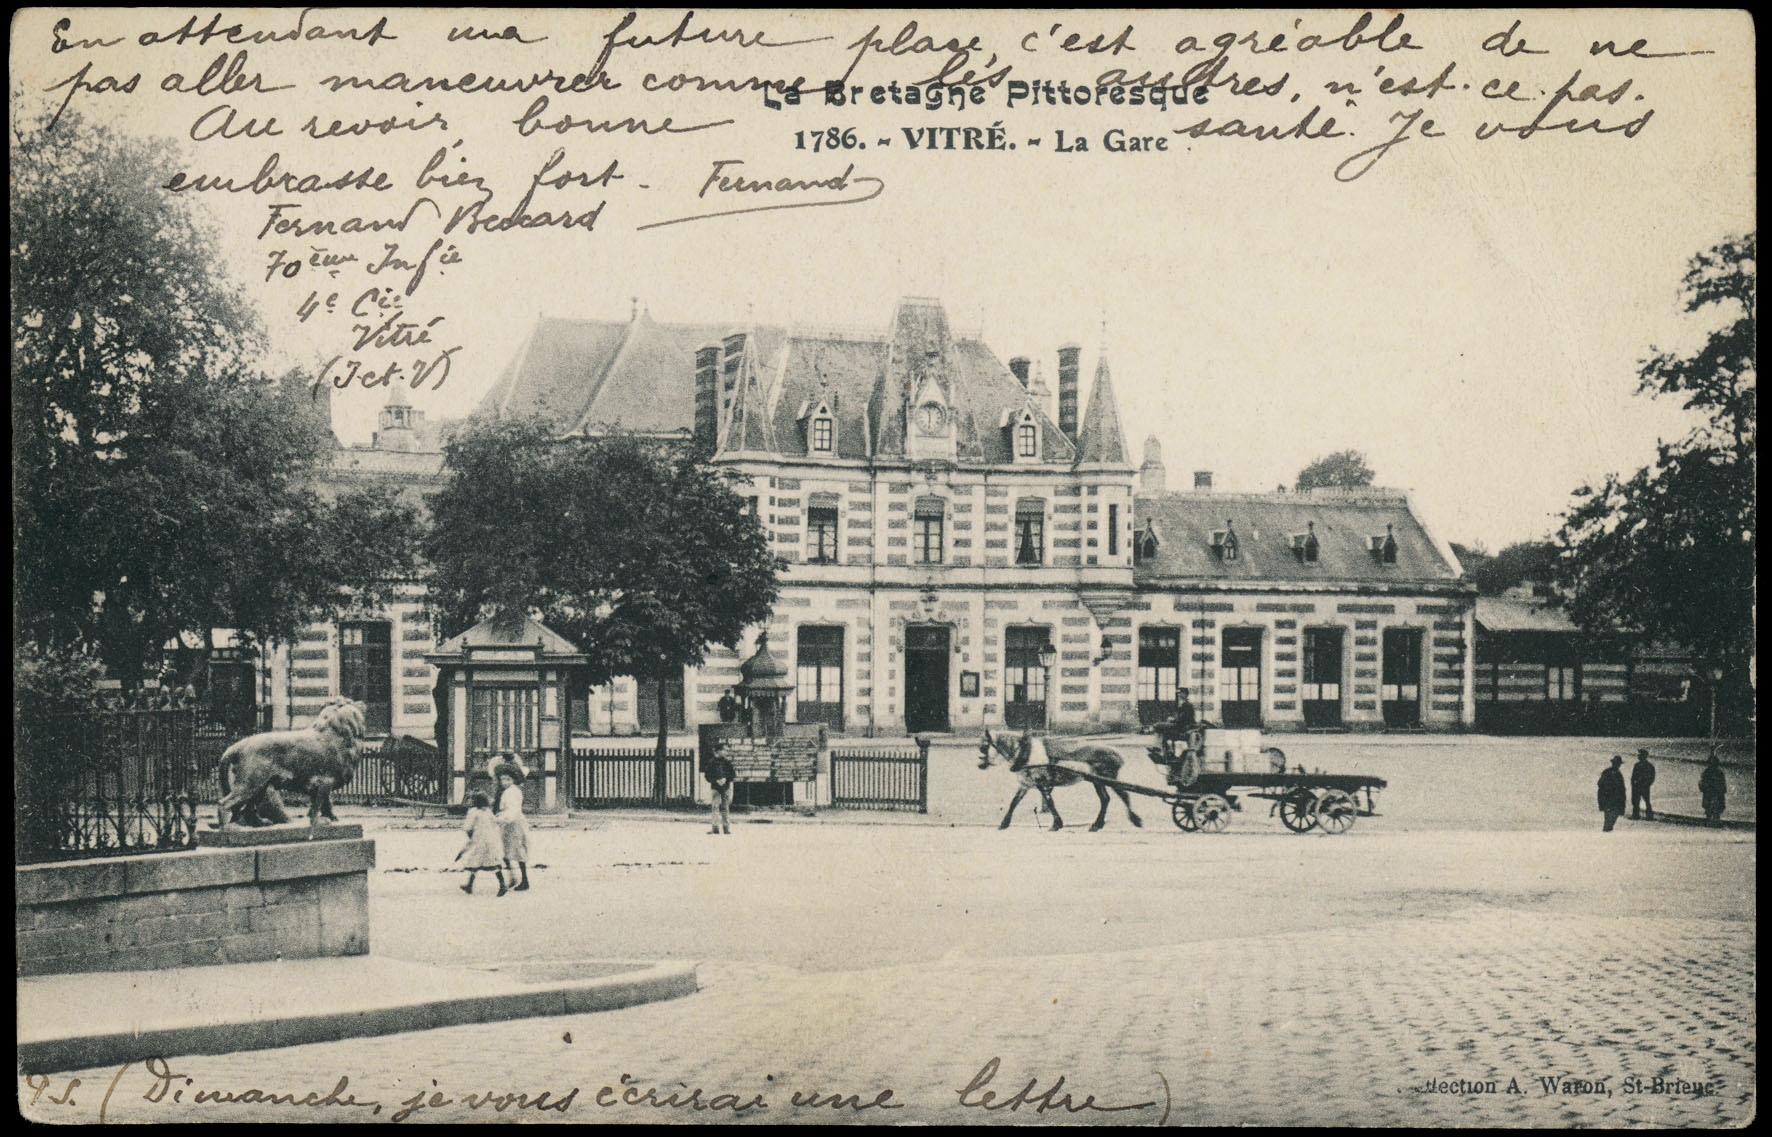 En attendant ma future place, c'est agréable de ne
pas aller maneuvrer comme les autres, n'est-ce-pas.
La Bretagne Pittoresque
Au revoir, bonne santé. Je vous
1786. - VITRÉ. - La Gare
embrasse bien fort. Fernand
Fernand
70ème Infie
4e Cie
Vitré
(I-et-V)
PS. (Dimanche, je vous écrirai une lettre)
Collection A. Waron, St-Brieuc